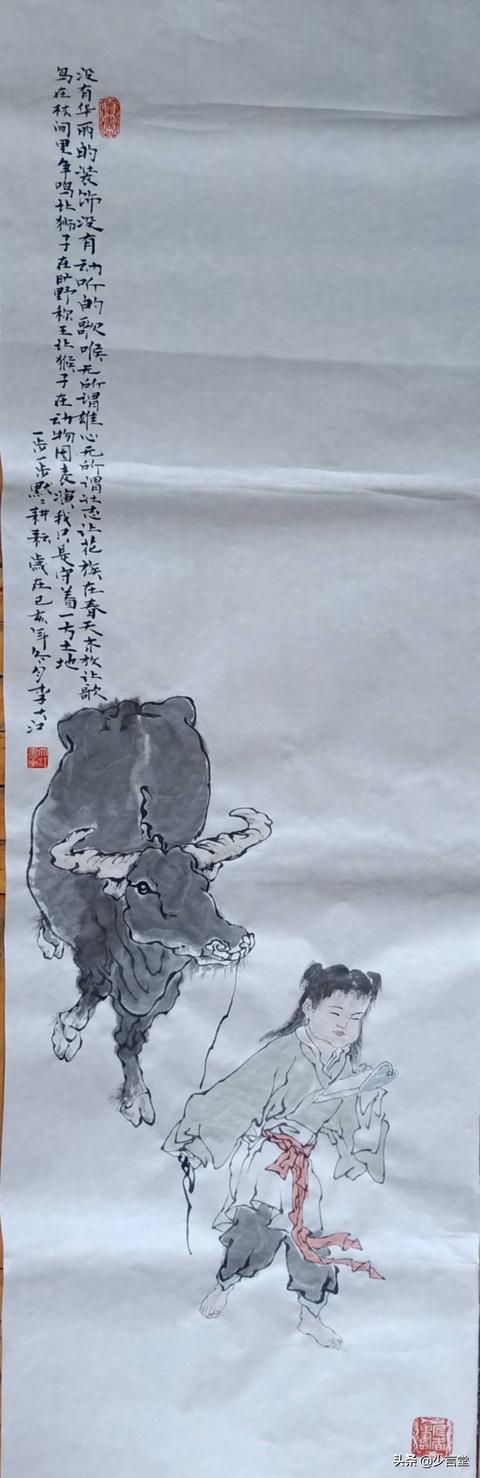 没有华丽的装饰没有动听的歌喉无所谓雄心无所谓壮志让花族在春天齐放让歌
鸟在林间里争鸣让狮子在旷野称王让猴子在动物园表演我只是守着一方土地
一步一步默默耕耘岁在己亥年冬月李大江
头条@少言堂